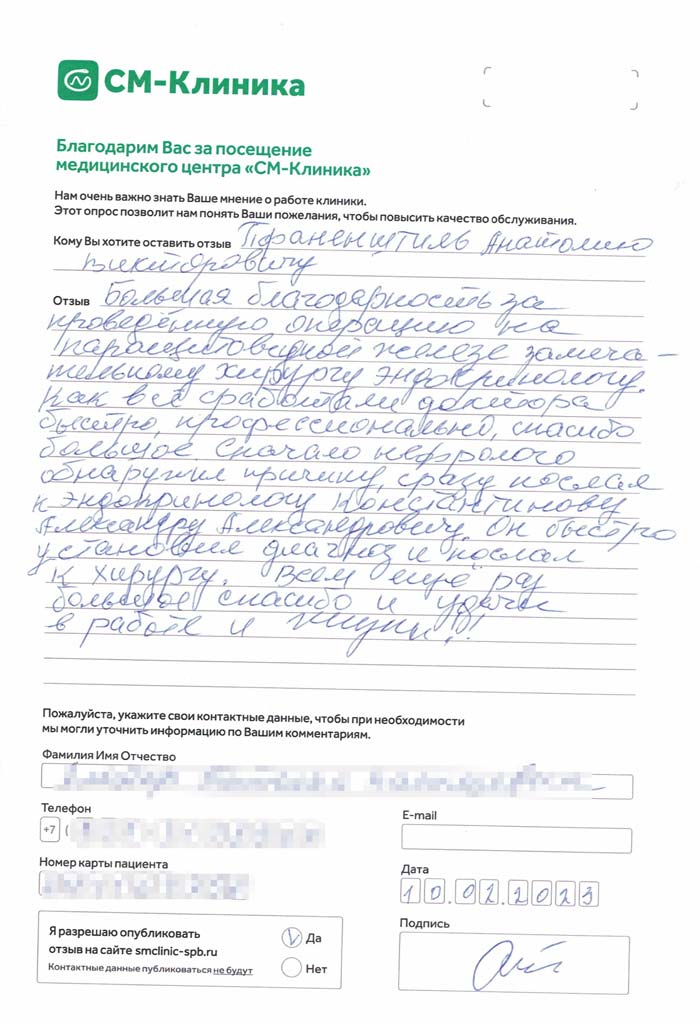 СМ-Клиника
Благодарим Вас за посещение
медицинского центра «СМ-Клиника»
Нам очень важно знать Ваше мнение о работе клиники.
Этот опрос позволит нам понять Ваши пожелания, чтобы повысить качество обслуживания.
Кому Вы хотите оставить отзыв Пфаненштиль Анатолию
Викторовичу
Отзыв Большая благодарность за
проведённую операцию на
паращитовидной железе замеча-
тельному хирургу эндокринологу.
Как все сработали доктора
быстро, профессионально, спасибо
большое. Сначало нефролого
обнаружил причину, сразу послал
к эндокринологу Константинову
Александру Александровичу. Он быстро
установил диагноз и послал
к хирургу. Всем ещё раз
большое спасибо и удачи
в работе и жизни!!!
Пожалуйста, укажите свои контактные данные, чтобы при необходимости
мы могли уточнить информацию по Вашим комментариям.
Фамилия Имя Отчество
Телефон
E-mail
+7 (
Номер карты пациента
Дата
10.02.2023
Я разрешаю опубликовать
отзыв на сайте smclinic-spb.ru
Контактные данные публиковаться не будут
V Да
Нет
Подпись